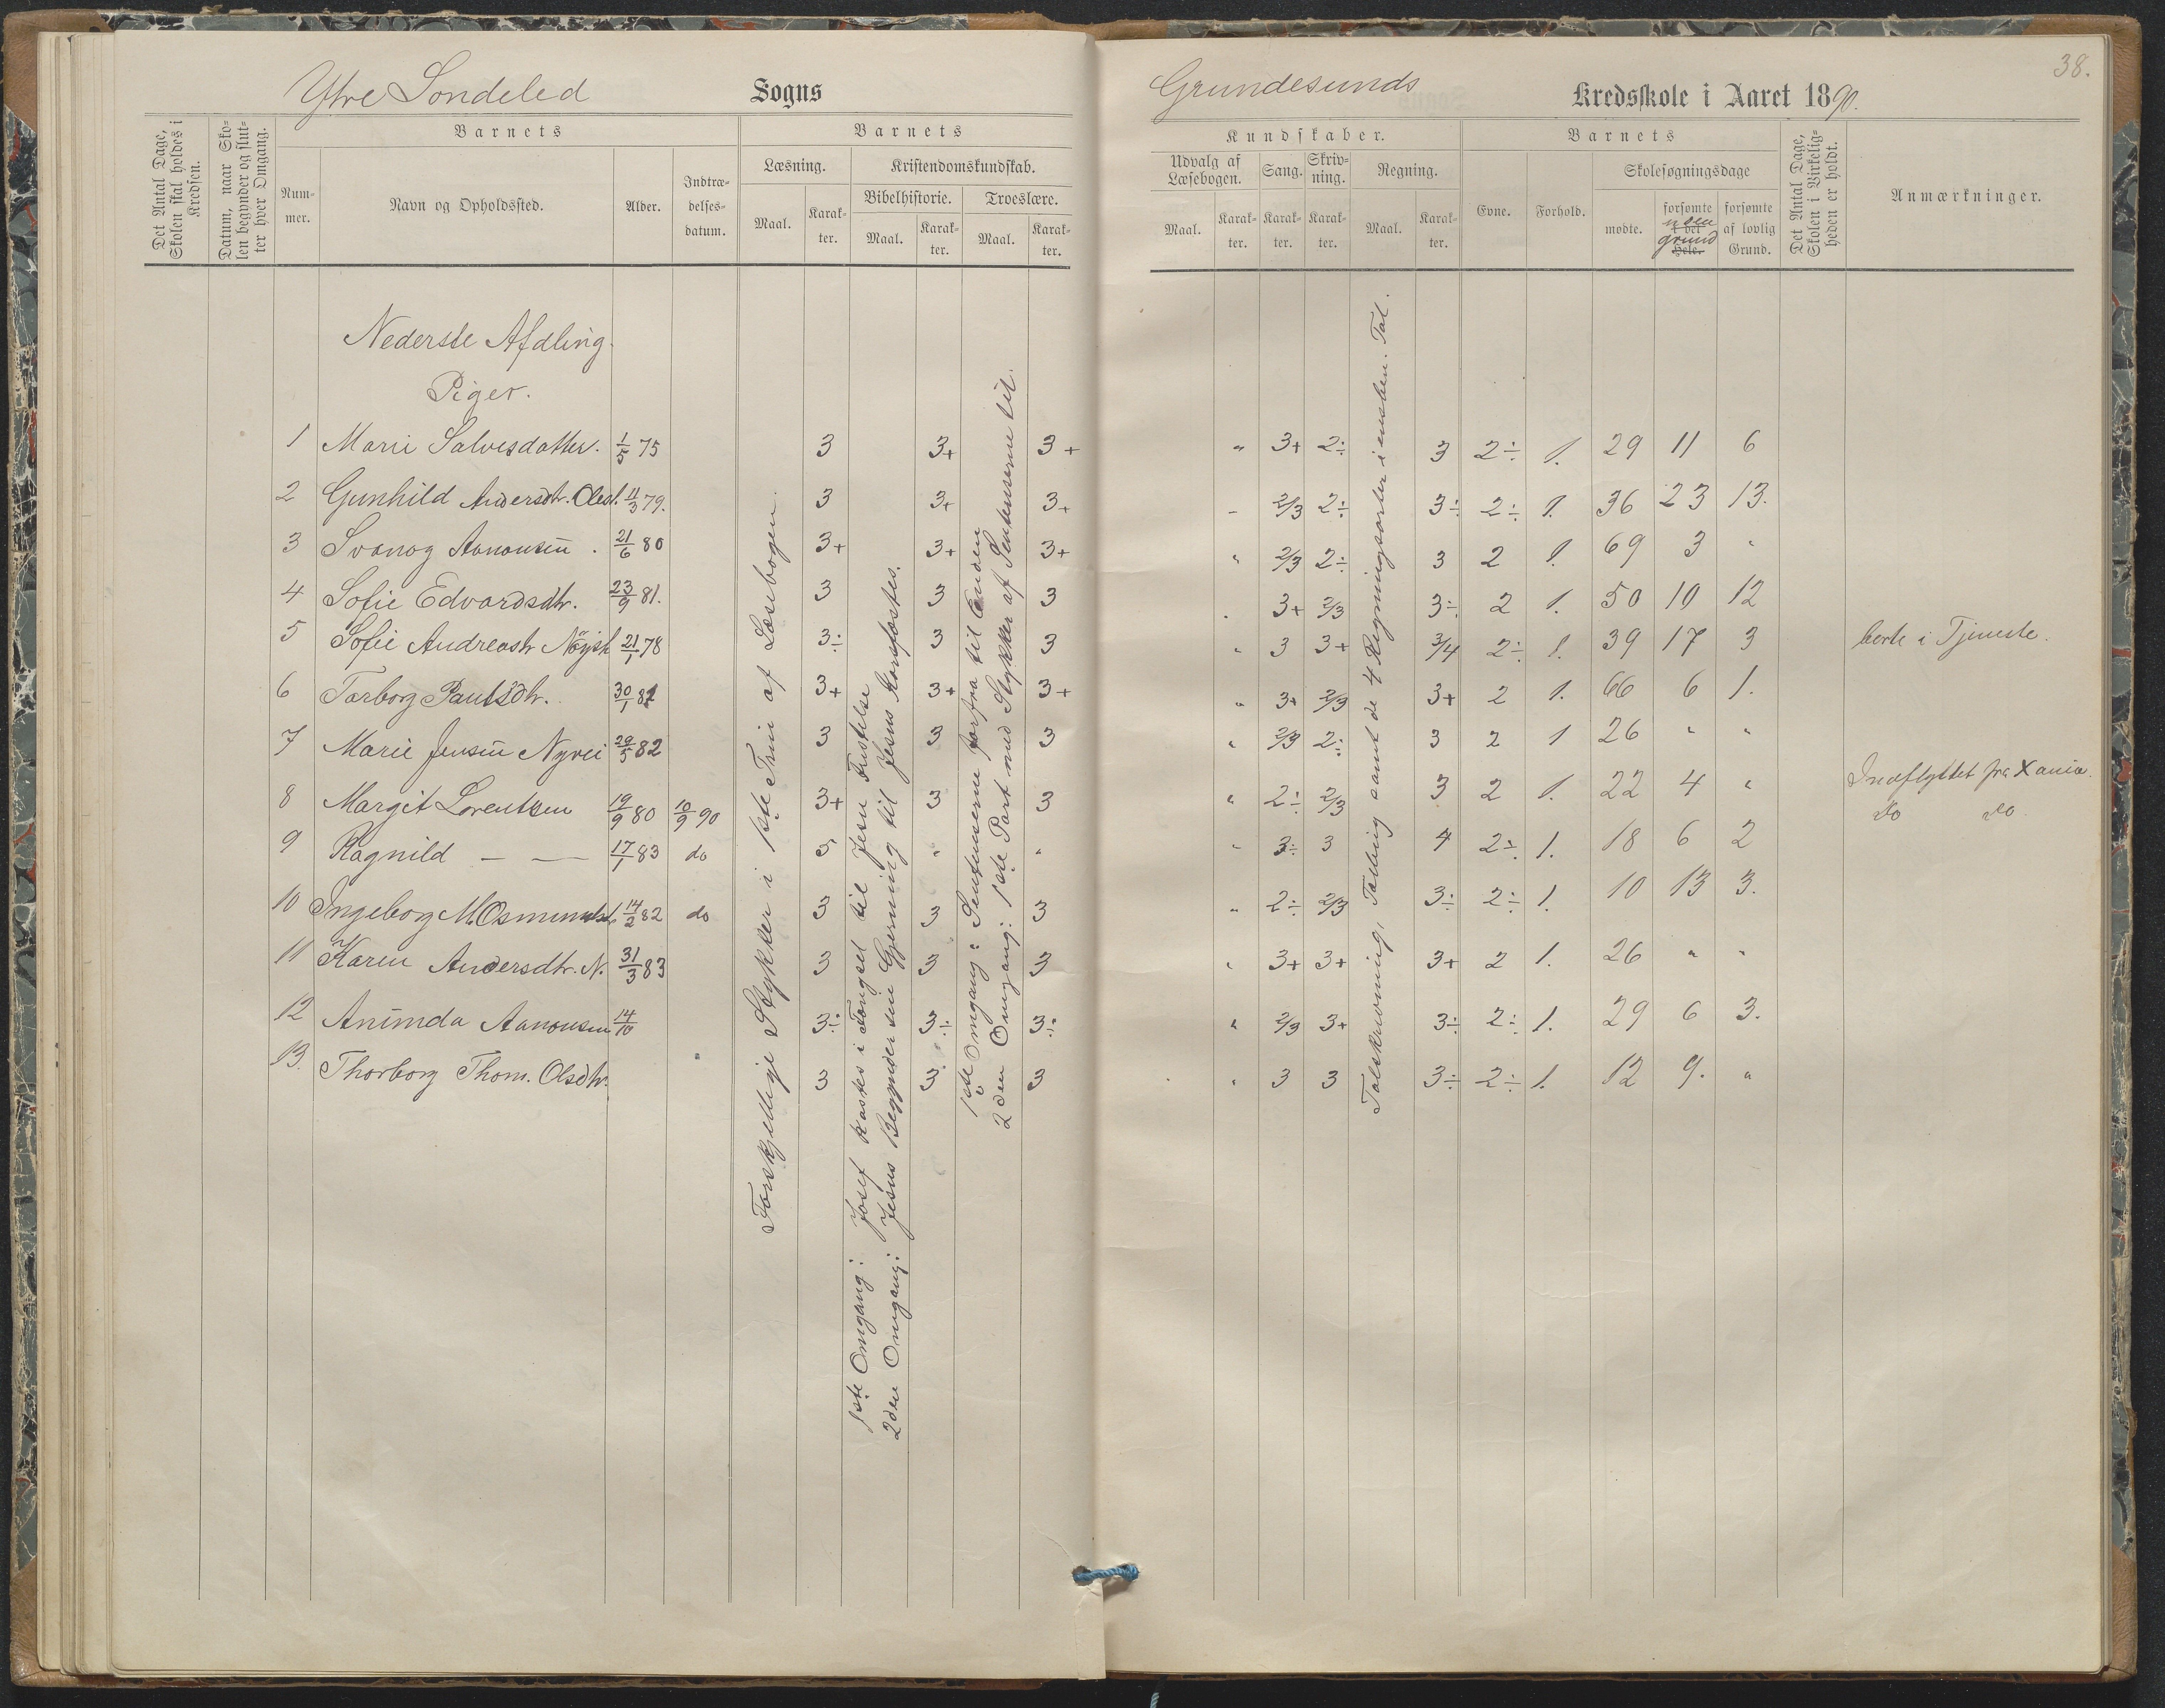 Ytre Søndeled Sogns
Det Antal Dage, Skolen skal holdes i Kredsen.
Datum, naar Skolen begynder og slutter hver Omgang.
Barnets
Nummer.
Navn og Opholdssted.
Alder.
Indtrædelsesdatum.
Barnets
Læsning.
Maal.
Karakter.
Kristendomskundskab.
Bibelhistorie.
Maal.
Karakter.
Troeslære.
Maal.
Karakter.
Nederste Afdling.
Piger.
1 Marie Salvesdatter. 1/5 75 3 3+ 3+
2 Gunhild Andersdtr. Olesl. 11/3 79. 3 3+ 3+
3 Svanog Aanonsen . 21/6 80 3+ 3+ 3+
4 Sofie Edvardsdtr. 23/9 81. 3 3 3
5 Sofie Andreasdtr 21/1 78 3÷ 3 3
6 Torborg Paulsdtr. 30/1 81 3+ 3+ 3+
7 Marie Jensen Nyvei 29/5 82 3 3 3
8 Margit Lorentsen 19/9 80 10/9 90 3+ 3 3
9 Ragnild — — 17/1 83 do 5 " "
10 Ingeborg M. 14/2 82 do 3 3 3
11 Karen Andersdtr. N. 31/3 83 3 3 3
12 Aanonsen 14/10 3÷ 3÷ 3÷
13. Thorborg Thom. Olsdtr. 3 3 3
Forskjellige Stykker i 1ste Trin af Læsebogen
1ste Omgang: Josef kastes i Fængsel til Jesu Fristelse
2den Omgang: Jesus Begynder sin Gjerning til Jesus korsfæstes.
1ste Omgang: Sentenserne forfra til Enden
2den Omgang: 1ste Part med Stykker af Sentenserne til.
38.
Grundesunds Kredsskole i Aaret 1890.
Kundskaber.
Udvalg af Læsebogen.
Maal.
Karakter.
Sang.
Karakter.
Skrivning.
Karakter.
Regning.
Maal.
Karakter.
Barnets
Evne.
Forhold.
Skolesøgningsdage
mødte.
forsømte i det Hele. uden grund
forsømte af lovlig Grund.
Det Antal Dage, Skolen i Virkeligheden er holdt.
Anmærkninger.
" 3+ 2÷ 3 2÷ 1. 29 11 6
" 2/3 2÷ 3÷ 2÷ 1. 36 23 13.
" 2/3 2÷ 3 2 1. 69 3 "
" 3+ 2/3 3÷ 2 1. 50 10 12
" 3 3+ 3/4 2÷ 1. 39 17 3 borte i Tjeneste.
" 3+ 2/3 3+ 2 1. 66 6 1.
" 2/3 2÷ 3 2 1 26 " "
" 2÷ 2/3 3 2 1. 22 4 " Indflyttet fra Xania.
" 3÷ 3 4 2÷ 1. 18 6 2 do do
" 2÷ 2/3 3÷ 2÷ 1. 10 13 3.
" 3+ 3+ 3+ 2 1. 26 " "
" 2/3 3+ 3÷ 2÷ 1. 29 6 3.
" 3 3 3÷ 2÷ 1. 12 9. "
Talskrivning, Tælling samt de 4 Regningsarter i ensben. Tal.